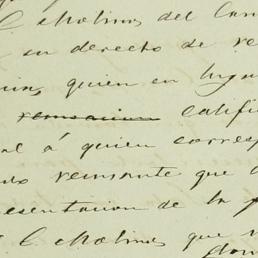 C Molina del Can
su derecho de re
quien en lugar
remsacion calific
al á quien corresp
remisante que
presentacion de la p
C Molina, que
don